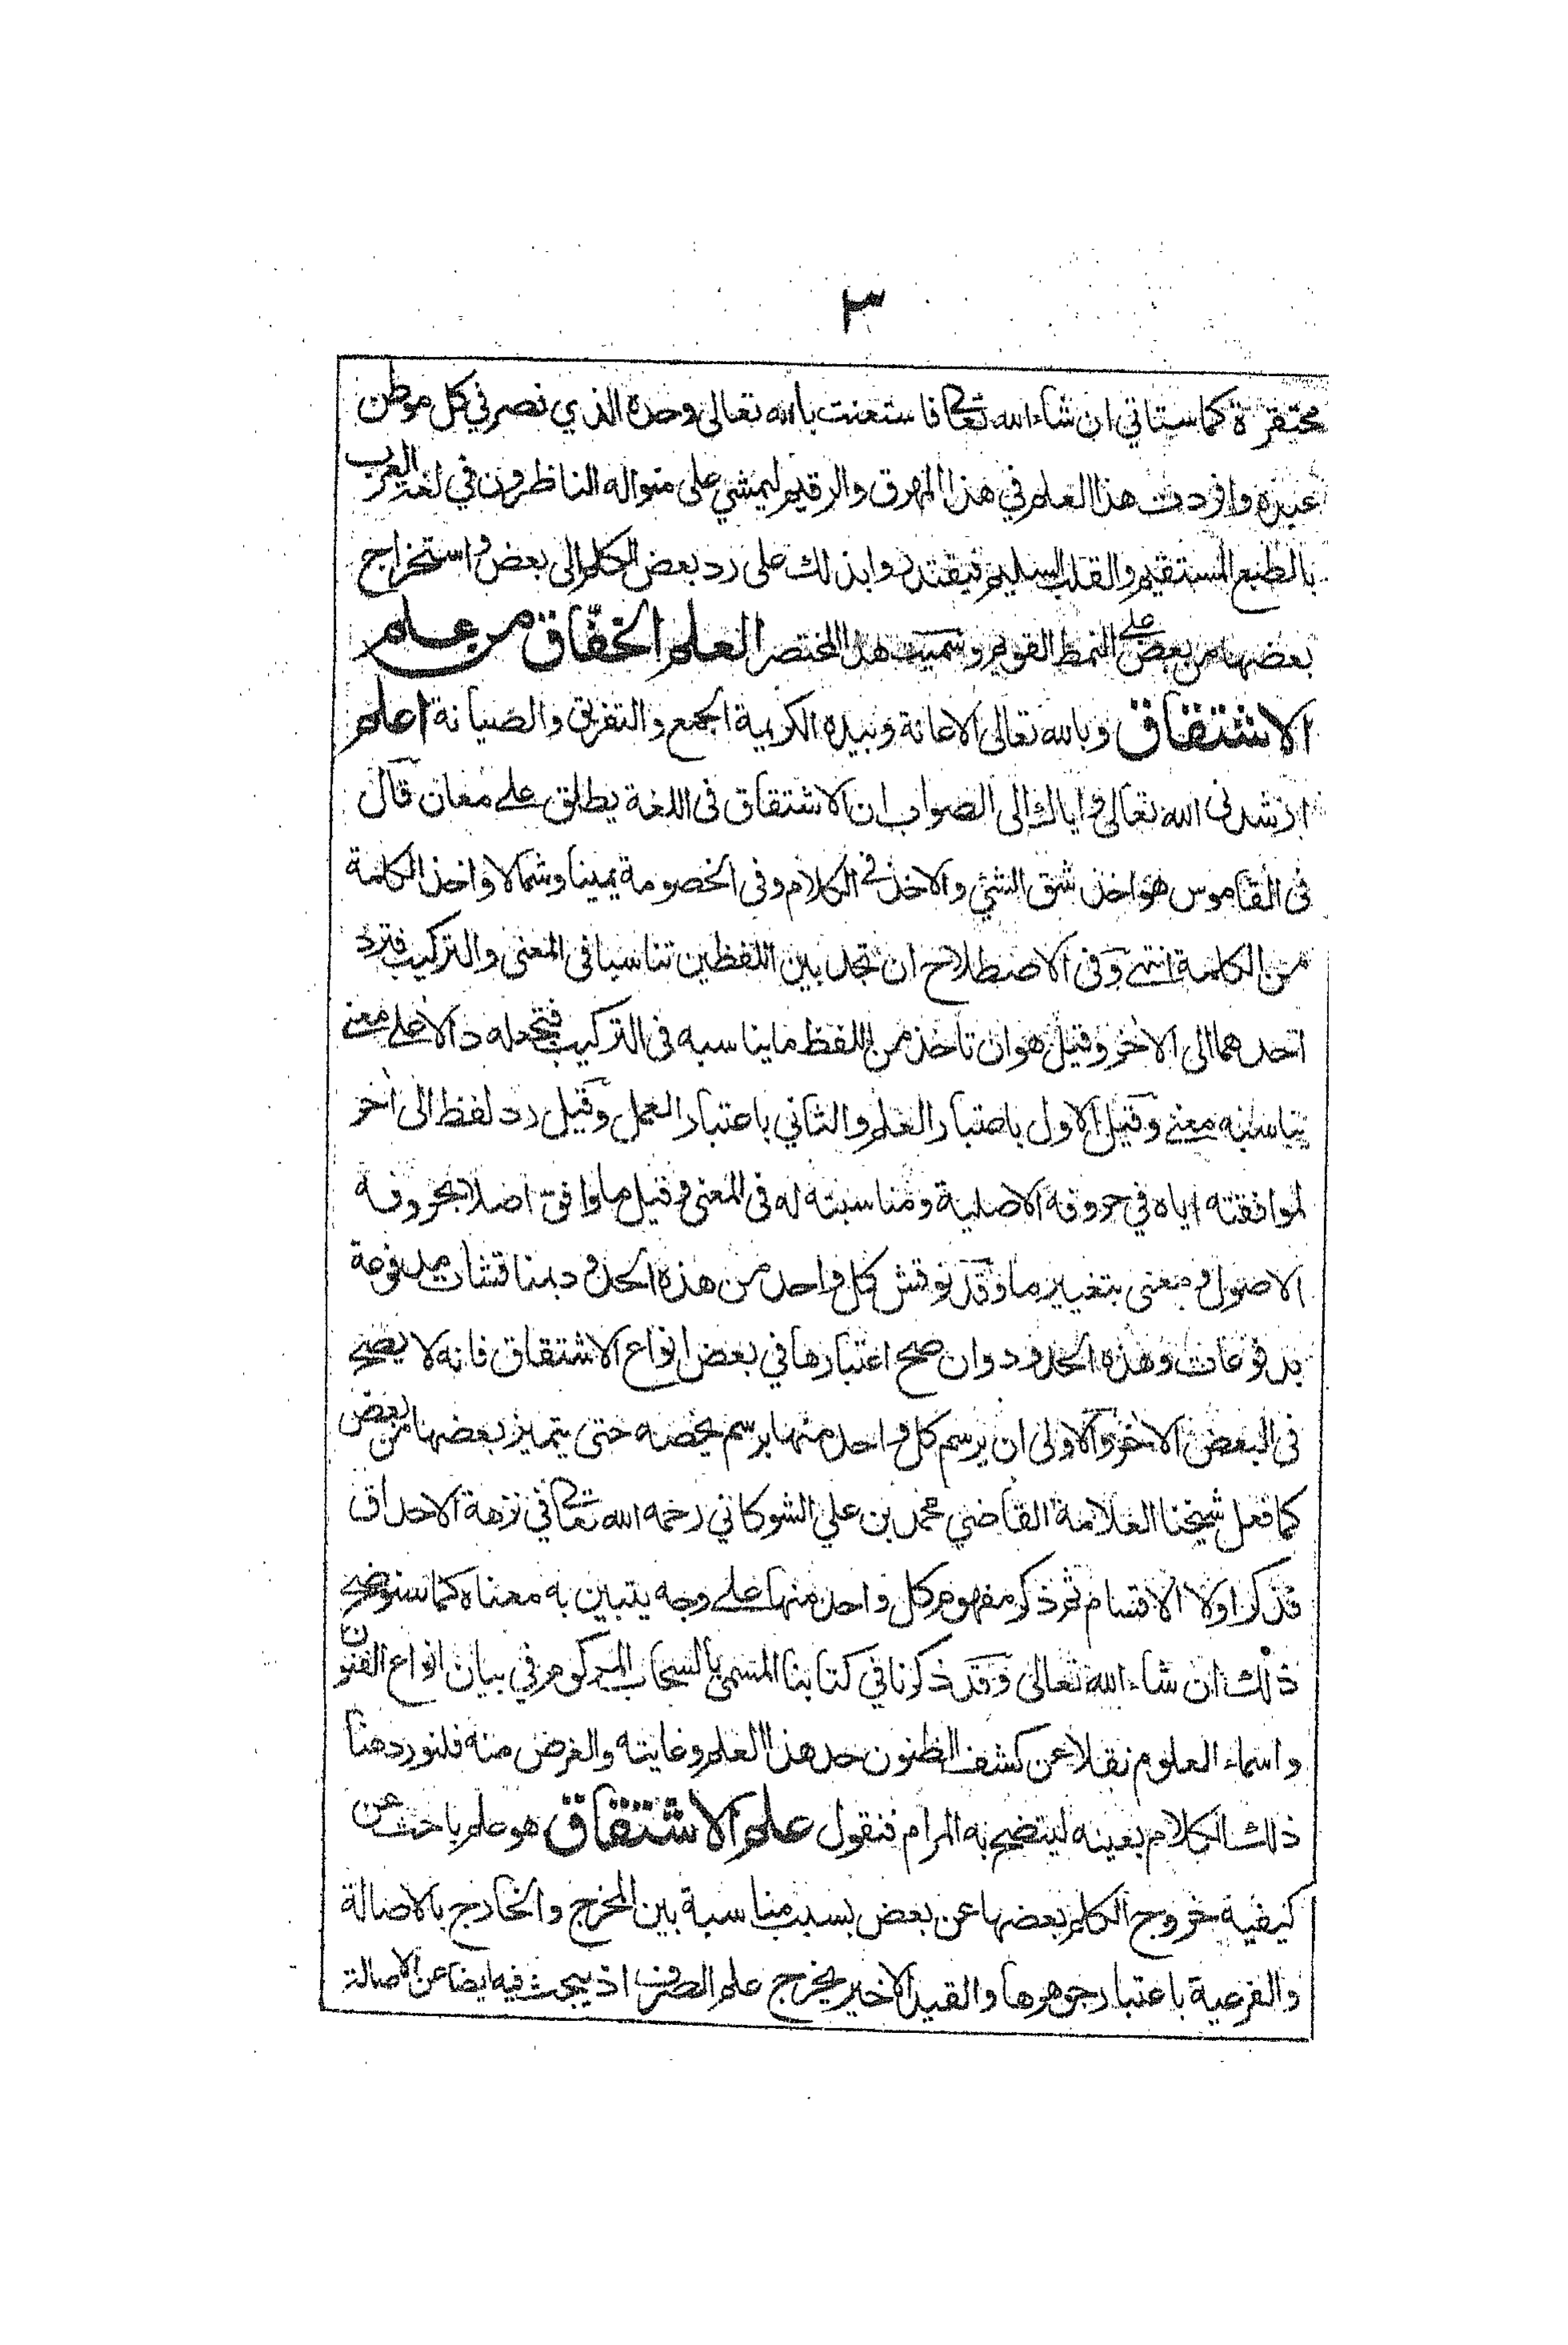 ٣
محتقرة كما ستاتي ان شاء الله تعالى فاستعنت بالله تعالى وحده الذي نصر في كل موطن
عبده وافردت هذا العلم في هذا المهرق والرقيم ليمشي على منواله الناظرون في لغة العرب
بالطبع المستقيم والقلب السليم فيقتدروا بذلك على رد بعض الكلم الى بعض واستخراج
بعضها من بعض على النمط القويم وسميت هذا المختصر العلم الخفّاق من علم
الاشتقاق وبالله تعالى الاعانة وبيده الكريمة الجمع والتفريق والصيانة اعلم
ارشدنى الله تعالى واياك الى الصواب ان الاشتقاق فى اللغة يطلق على معان قال
فى القاموس هو اخذ شق الشئ والاخذ فى الكلام وفى الخصومة يمينا وشمالا واخذ الكلمة
من الكلمة انتهى وفى الاصطلاح ان تجد بين اللفظين تناسبا فى المعنى والتركيب فترد
احدهما الى الاخر وقيل هو ان تاخذ من اللفظ ما يناسبه فى التركيب فتجعله دالا على معنى
يناسبه معنى وقيل الاول باعتبار العلم والثاني باعتبار العمل وقيل رد لفظ الى اخر
لموافقته اياه في حروفه الاصلية ومناسبته له فى المعنى وقيل ما وافق اصلا بحروفه
الاصول ومعنى بتغيير ما وقد نوقش كل واحد من هذه الحدود بمناقشات مدفوعة
بدفوعات وهذه الحدود وان صح اعتبارها في بعض انواع الاشتقاق فانه لا يصح
فى البعض الاخر والاولى ان يرسم كل واحد منها برسم يخصه حتى يتميز بعضها من بعض
كما فعل شيخنا العلامة القاضي محمد بن علي الشوكاني رحمه الله تعالى في نزهة الاحداق
فذكر اولا الاقسام ثم ذكر مفهوم كل واحد منها على وجه يتبين به معناه كما سنوضح
ذلك ان شاء الله تعالى وقد ذكرنا في كتابنا المسمى بالسحاب المركوم في بيان انواع الفنون
واسماء العلوم نقلا عن كشف الظنون حد هذا العلم وغايته والغرض منه فلنورد هنا
ذلك الكلام بعينه ليتضح به المرام فنقول علم الاشتقاق هو علم باحث عن
كيفية خروج الكلم بعضها عن بعض بسبب مناسبة بين المخرج والخارج بالاصالة
والفرعية باعتبار جوهرها والقيد الاخير يخرج علم الصرف اذ يبحث فيه ايضا عن الاصالة